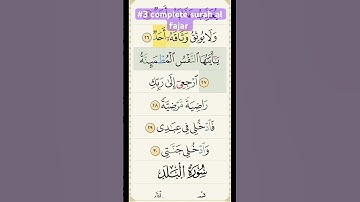 #3 complete surah al
fajar
وَلَا يُوثِقُ وَثَاقَهُۥٓ أَحَدٌ ٢٦
يَـٰٓأَيَّتُهَا ٱلنَّفْسُ ٱلْمُطْمَئِنَّةُ
٢٧ ٱرْجِعِىٓ إِلَىٰ رَبِّكِ
رَاضِيَةً مَّرْضِيَّةً ٢٨
فَٱدْخُلِى فِى عِبَـٰدِى ٢٩
وَٱدْخُلِى جَنَّتِى ٣٠
سُورَةُ الْبَلَدِ